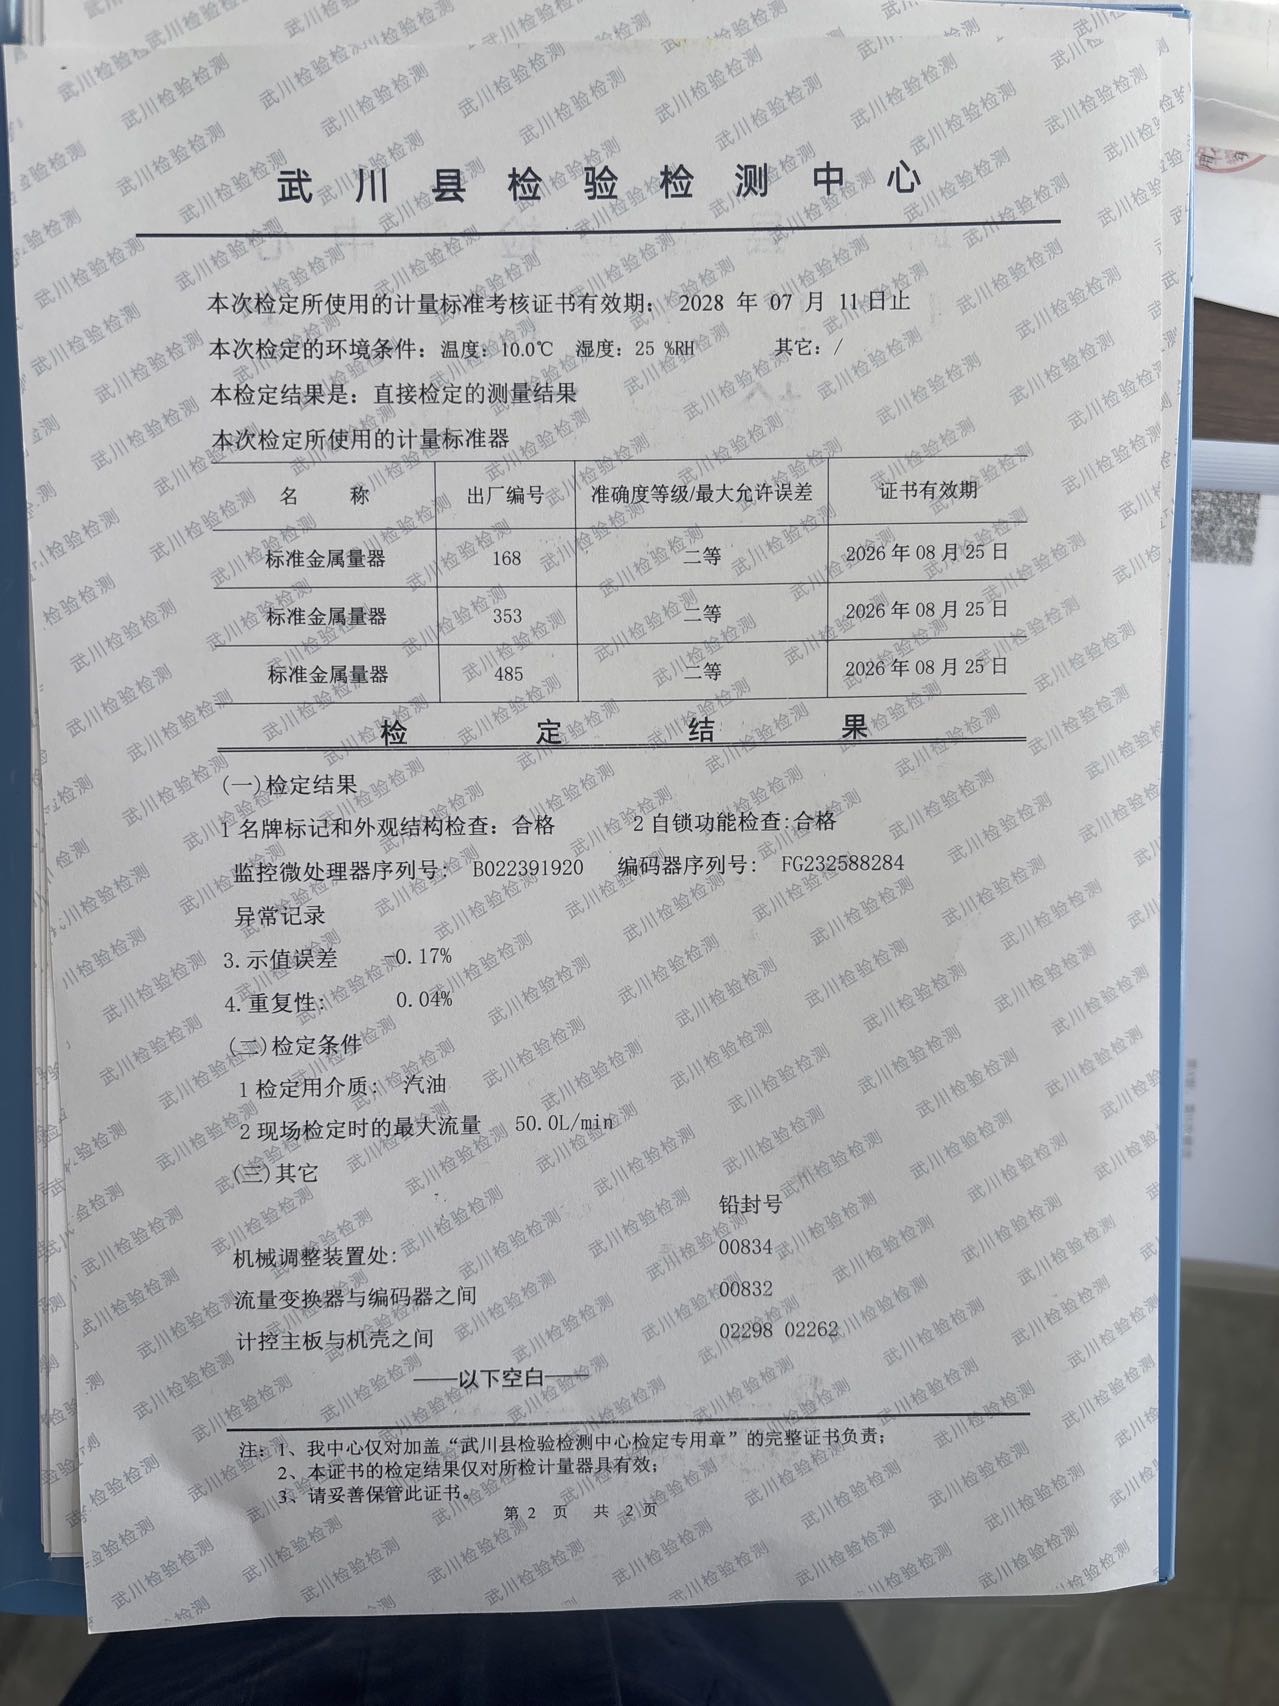 武川县检验检测中心
本次检定所使用的计量标准考核证书有效期： 2028 年 07 月 11日止
本次检定的环境条件：温度：10.0℃ 湿度：25 %RH 其它：/
本检定结果是：直接检定的测量结果
本次检定所使用的计量标准器
名 称 出厂编号 准确度等级/最大允许误差 证书有效期
标准金属量器 168 二等 2026 年 08 月 25 日
标准金属量器 353 二等 2026 年 08 月 25 日
标准金属量器 485 二等 2026 年 08 月 25 日
检 定 结 果
(一)检定结果
1 名牌标记和外观结构检查：合格 2 自锁功能检查:合格
监控微处理器序列号: B022391920 编码器序列号: FG232588284
异常记录
3.示值误差 -0.17%
4.重复性: 0.04%
(二)检定条件
1 检定用介质: 汽油
2 现场检定时的最大流量 50.0L/min
(三)其它
铅封号
机械调整装置处: 00834
流量变换器与编码器之间 00832
计控主板与机壳之间 02298 02262
——以下空白——
注：1、我中心仅对加盖“武川县检验检测中心检定专用章”的完整证书负责；
2、本证书的检定结果仅对所检计量器具有效；
3、请妥善保管此证书。
第 2 页 共 2 页
武川检验检测